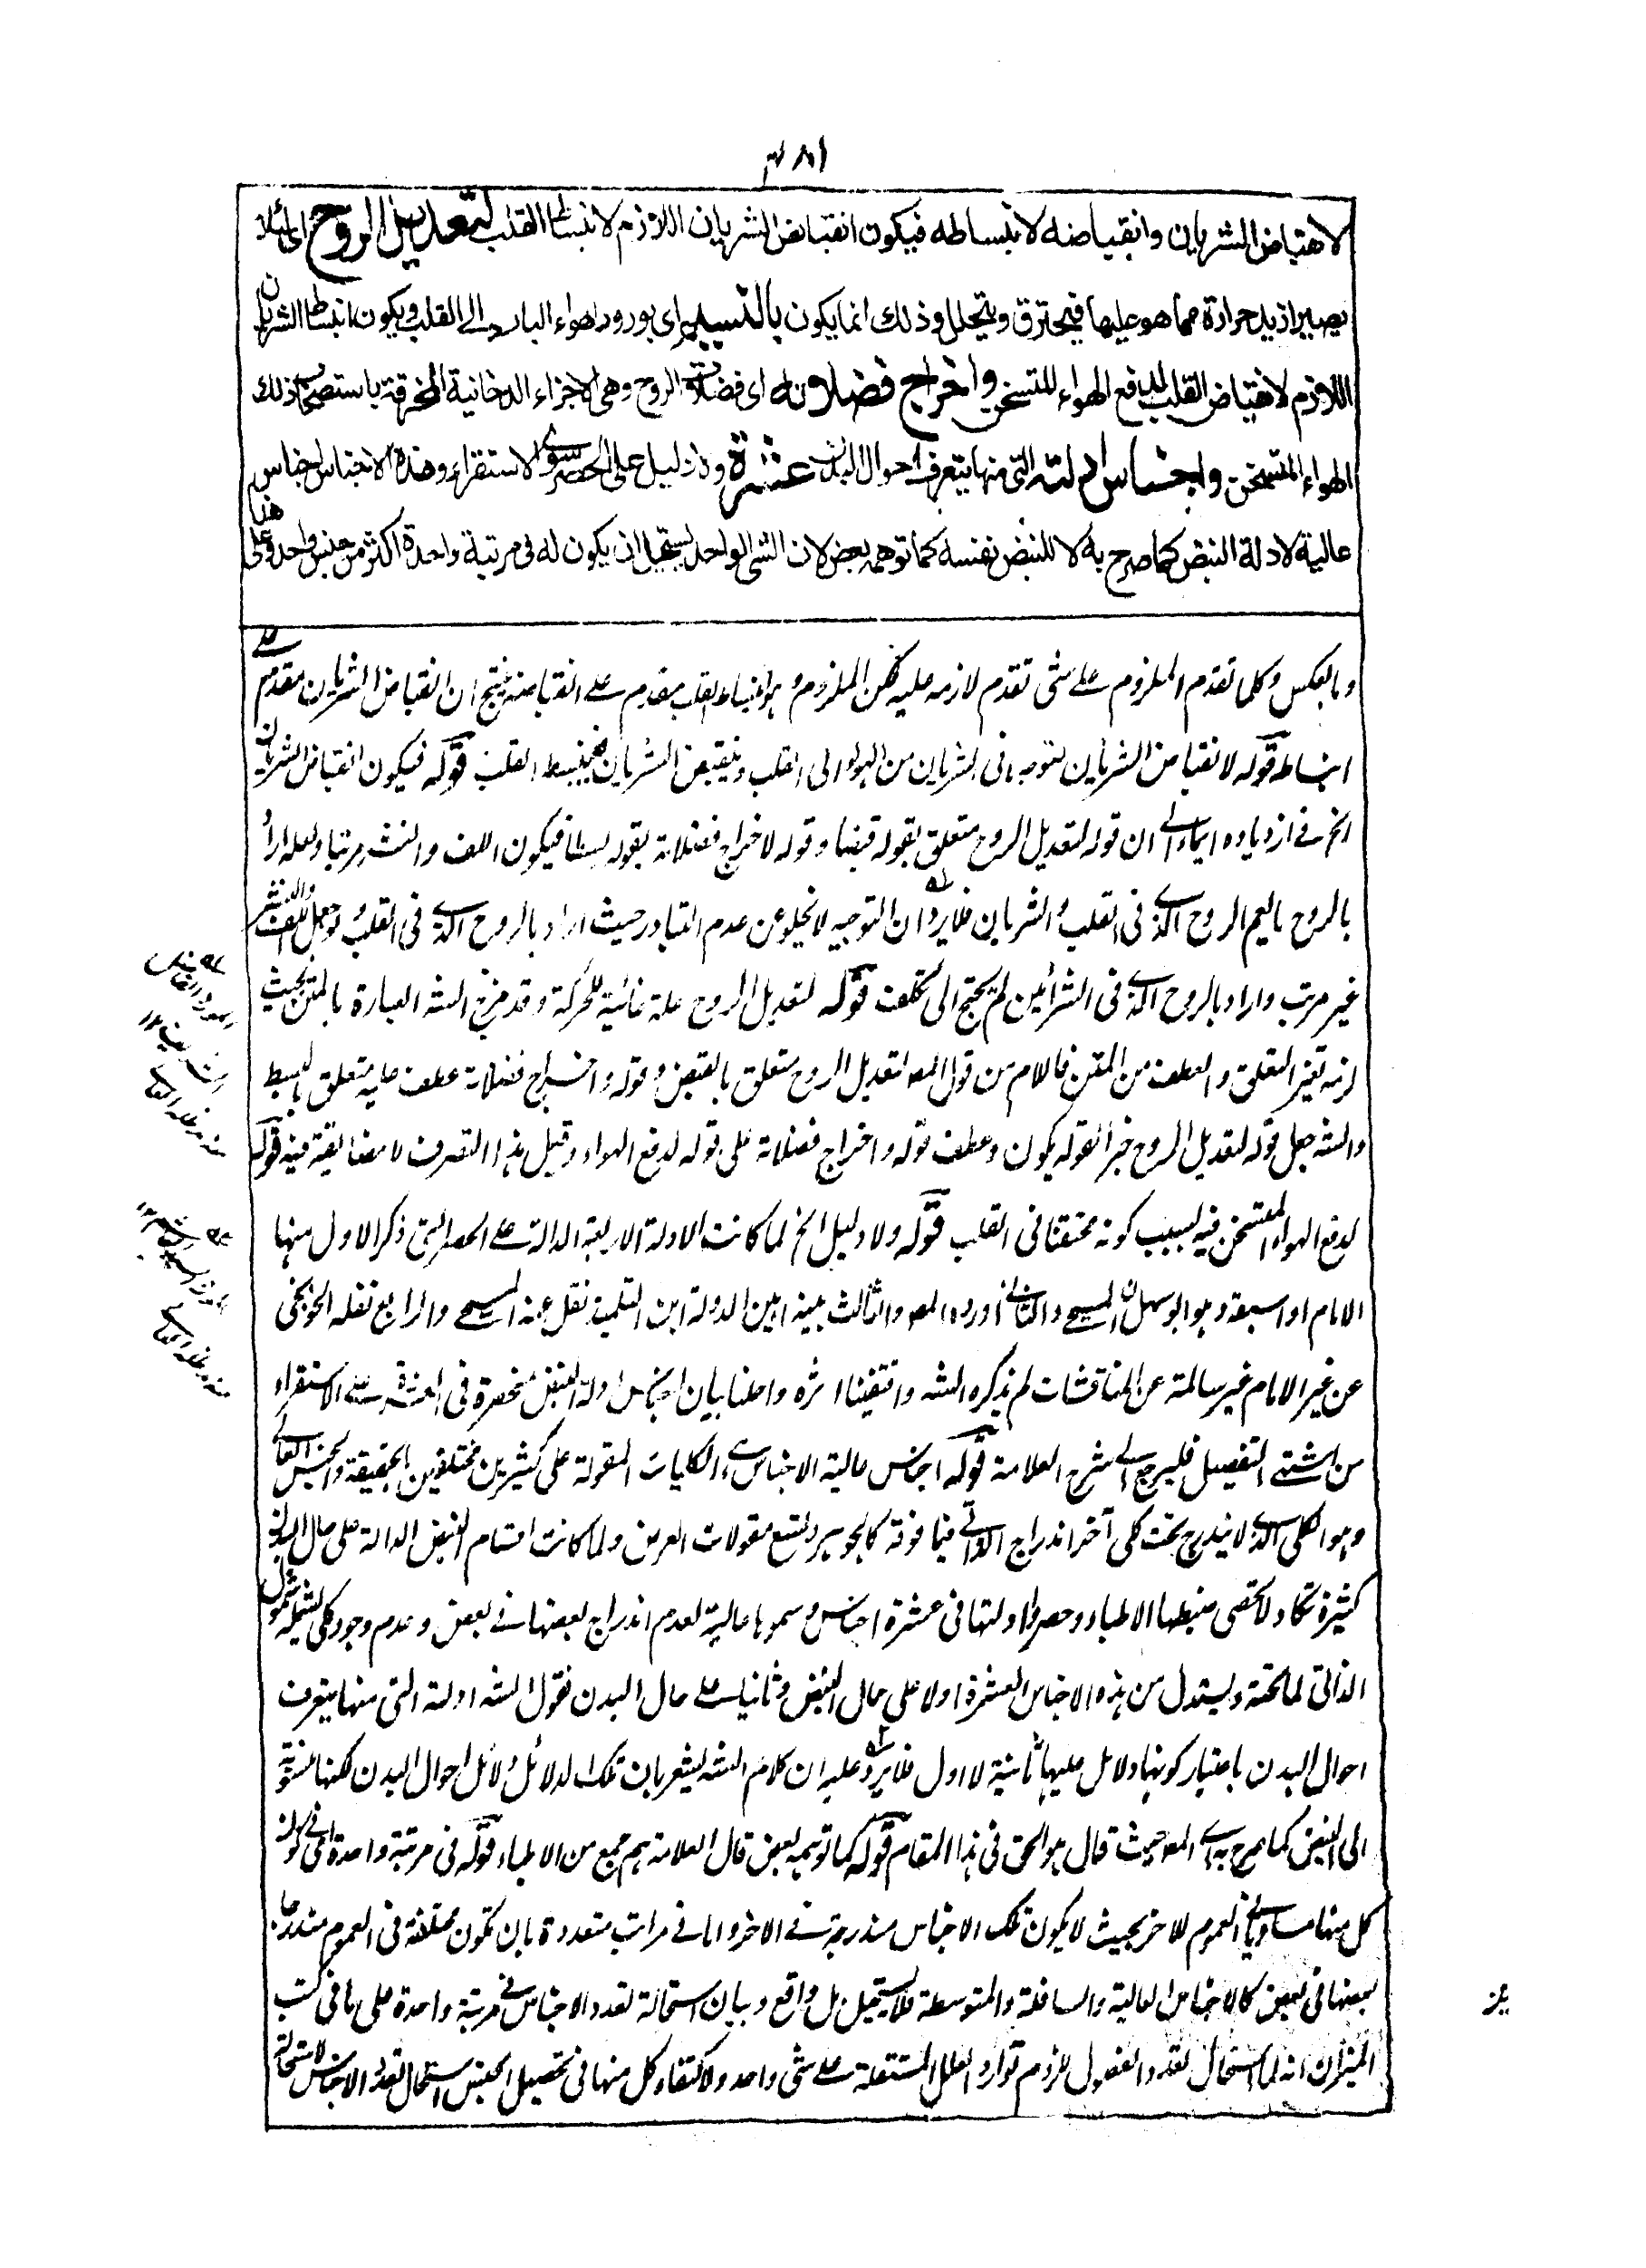 ٤٨١
لانقباض الشريان وانقباضه لانبساطه فيكون انقباض الشريان اللازم لانبساط القلب لتعديل الروح اى لئلا
يصير ازيد حرارة مما هو عليها فيحترق ويتحلل وذلك انما يكون بالنسيم اى بورود الهواء البارد الى القلب ويكون انبساط الشريان
اللازم لانقباض القلب لدفع الهواء المتسخن واخراج فضلاته اى فضلات الروح وهى الاجزاء الدخانية المحترقة باستصحاب ذلك
الهواء المتسخن واجناس ادلته التى منها يتعرف احوال البدن عشرة ولا دليل على الحصر سوى الاستقراء وهذه الاجناس اجناس
عالية لادلة النبض كما صرح به لا للنبض نفسه كما توهمه بعض لان الشئ الواحد يستحيل ان يكون له فى مرتبة واحدة اكثر من جنس واحد وعلى هذا
وبالعكس وكلما تقدم الملزوم على شئ تقدم لازمه عليه لكن الملزوم وهو انبساط القلب مقدم على انقباضه ينتج ان انقباض الشريان مقدم على
انبساطه قوله لانقباض الشريان لتوجه ما فى الشريان من الهواء الى القلب وينقبض الشريان فينبسط القلب قوله فيكون انقباض الشريان
الخ فى ازدياده ايماء الى ان قوله لتعديل الروح متعلق بقوله قبضا وقوله لاخراج فضلاته بقوله بسطا فيكون اللف والنشر مرتبا ولعله اراد
بالروح ما يعم الروح الذى فى القلب والشريان فلا يرد ان التوجيه لا يخلو عن عدم التبادر حيث اراد بالروح الذى فى القلب ولو جعل اللف والنشر
غير مرتب واراد بالروح الذى فى الشرائين لم يحتج الى تكلف قوله لتعديل الروح علة غائية للحركة وقد مزج الشه العبارة بالمتن بحيث
لزمه تغير التعلق والعطف من المتن فاللام من قول المصه لتعديل الروح متعلق بالقبض وقوله واخراج فضلاته عطف عليه متعلق بالبسط
والشه جعل قوله لتعديل الروح خبرا لقوله يكون وعطف قوله واخراج فضلاته على قوله لدفع الهواء وقيل هذا التصرف لا مضايقة فيه قوله
لدفع الهواء المتسخن فيه بسبب كونه محتقنا فى القلب قوله ولا دليل الخ لما كانت الادلة الاربعة الدالة على الحصر التى ذكر الاول منها
الامام او اسبقه وهو ابو سهل المسيحى والثانى اورده المصه والثالث بينه امين الدولة ابن التلميذ نقل عنه المسيحى والرابع نقله الخونجى
عن غير الامام غير سالمة عن المناقشات لم يذكره الشه واقتفينا اثره واحلنا بيان اجناس ادلة النبض منحصرة فى العشرة على الاستقراء
من اشتهى التفصيل فليرجع الى شرح العلامة قوله اجناس عالية الاجناس هى الكليات المقولة على كثيرين مختلفين بالحقيقة والجنس العالى
وهو الكلى الذى لا يندرج تحت كلى آخر اندراج الذاتى فيما فوقه كالجوهر وتسع مقولات العرض ولما كانت اقسام النبض الدالة على حال البدن
كثيرة تكاد لا تحصى ضبطها الاطباء وحصروا ادلتها فى عشرة اجناس وسموها عالية لعدم اندراج بعضها فى بعض وعدم وجود كلى يشمله شمول
الذاتى لما تحته ويستدل من هذه الاجناس العشرة اولا على حال النبض وثانيا على حال البدن فقول الشه ادلته التى منها يتعرف
احوال البدن باعتبار كونها دلائل عليها ثانية لا اول فلا يرد عليه ان كلام الشه يشعر بان تلك الدلائل دلائل احوال البدن لكنها منسوبة
الى النبض كما صرح به المصه حيث قال هو الحق فى هذا المقام قوله كما توهمه بعض قال العلامة هم جمع من الاطباء قوله فى مرتبة واحدة اى فى كون
كل منها مساويا فى العموم للاخر بحيث لا يكون تلك الاجناس مندرجة فى الاخر واما فى مراتب متعددة بان تكون مختلفة فى العموم مندرجا
بعضها فى بعض كالاجناس العالية والسافلة والمتوسطة فلا يستحيل بل واقع وبيان استحالة تعدد الاجناس فى مرتبة واحدة على ما فى كتب
الميزان انه لما استحال تعدد الفصول للزوم توارد العلل المستقلة على شئ واحد ولاكتفاء كل منها فى تحصيل الجنس استحال تعدد الاجناس لاستحالة